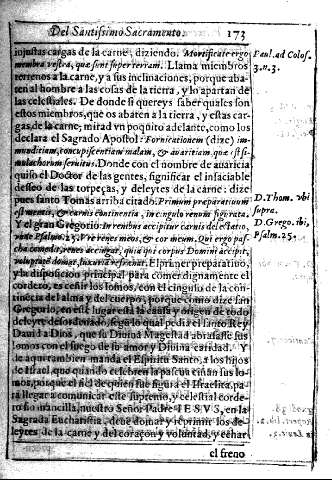 Del Santissimo Sacramento. 173
injustas cargas de la carne, diziendo. Mortificate ergo
membra vestra, que sunt super terram. Llama miembros
terrenos a la carne, y a sus inclinaciones, porque aba-
ten al hombre a las cosas de la tierra, y lo apartan de
las celestiales. De donde si quereys saber quales son
estos miembros, que os abaten a la tierra, y estas car-
gas, de la carne; mirad vn poquito adelante, como los
declara el Sagrado Apostol: Fornicationem (dize) im-
munditiam, concupiscentiam malam, & avaritiam, que est si-
mulachorum servitus. Donde con el nombre de avaricia
quiso el Doctor de las gentes, significar el insaciable
desseo de las torpeças, y deleytes de la carne: dize
pues santo Tomas arriba citado. Primum preparatiuum
est mentis, & carnis continentia, in cingulo renum figurata.
Y el gran Gregorio. In renibus accipitur carnis delectatio,
unde Psalm. 25. Vre renes meos, & cor meum. Qui ergo pas-
cha comedit, renes accingat, quia qui corpus Domini accipit,
voluptates domat, luxuria refrenet. El primer preparatiuo,
y la disposicion principal para comer dignamente el
cordero, es ceñir los lomos, con el cingulo de la con-
tinencia del alma y del cuerpo, porque como dize san
Gregorio, en este lugar está la causa y origen de todo
deleyte desordenado, segun lo qual pedia el santo Rey
David a Dios, que su Divina Magestad abrasasse sus
lomos con el fuego de su amor y Divina caridad. Y
de aqui tambien manda el Espiritu Santo, a los hijos
de Israel, que quando celebren la pascua ciñan sus lo-
mos, porque el fiel de quien fue figura el Israelita, pa-
ra llegar a comunicar este supremo, y celestial corde-
ro sin mancilla, nuestro Señor Padre IESVS, en la
Sagrada Eucharistia, deue domar y reprimir los de-
leytes de la carne y del coraçon y voluntad, y echar
el freno
Paul. ad Colos.
3. n. 3.
D. Thom. vbi
supra.
D. Grego. ibi,
Psalm. 25.